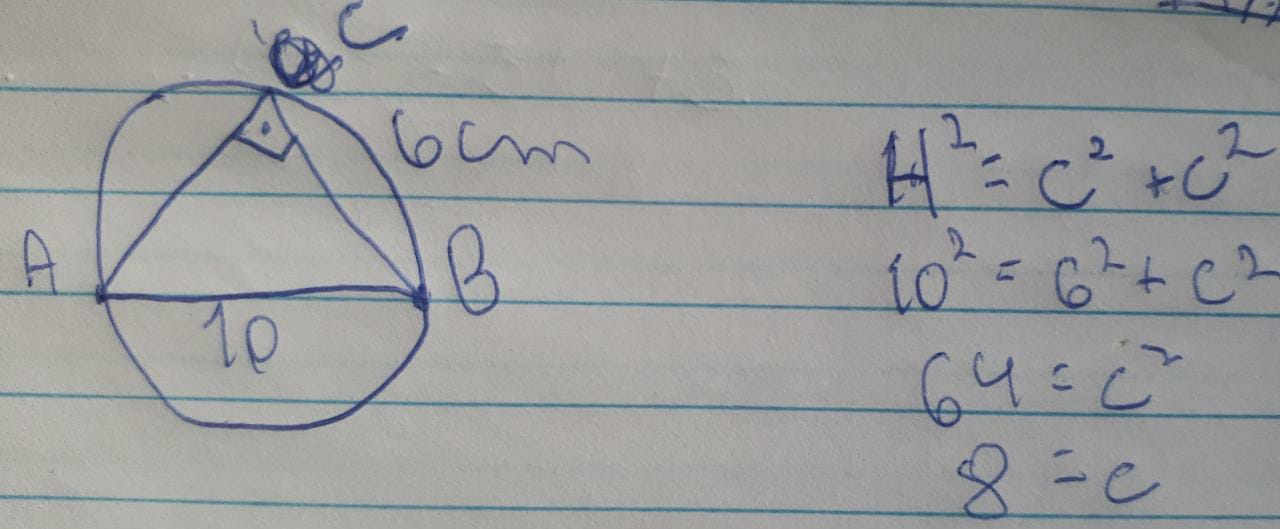 C
6cm
A
B
10
H² = C² + C²
10² = 6² + C²
64 = C²
8 = C